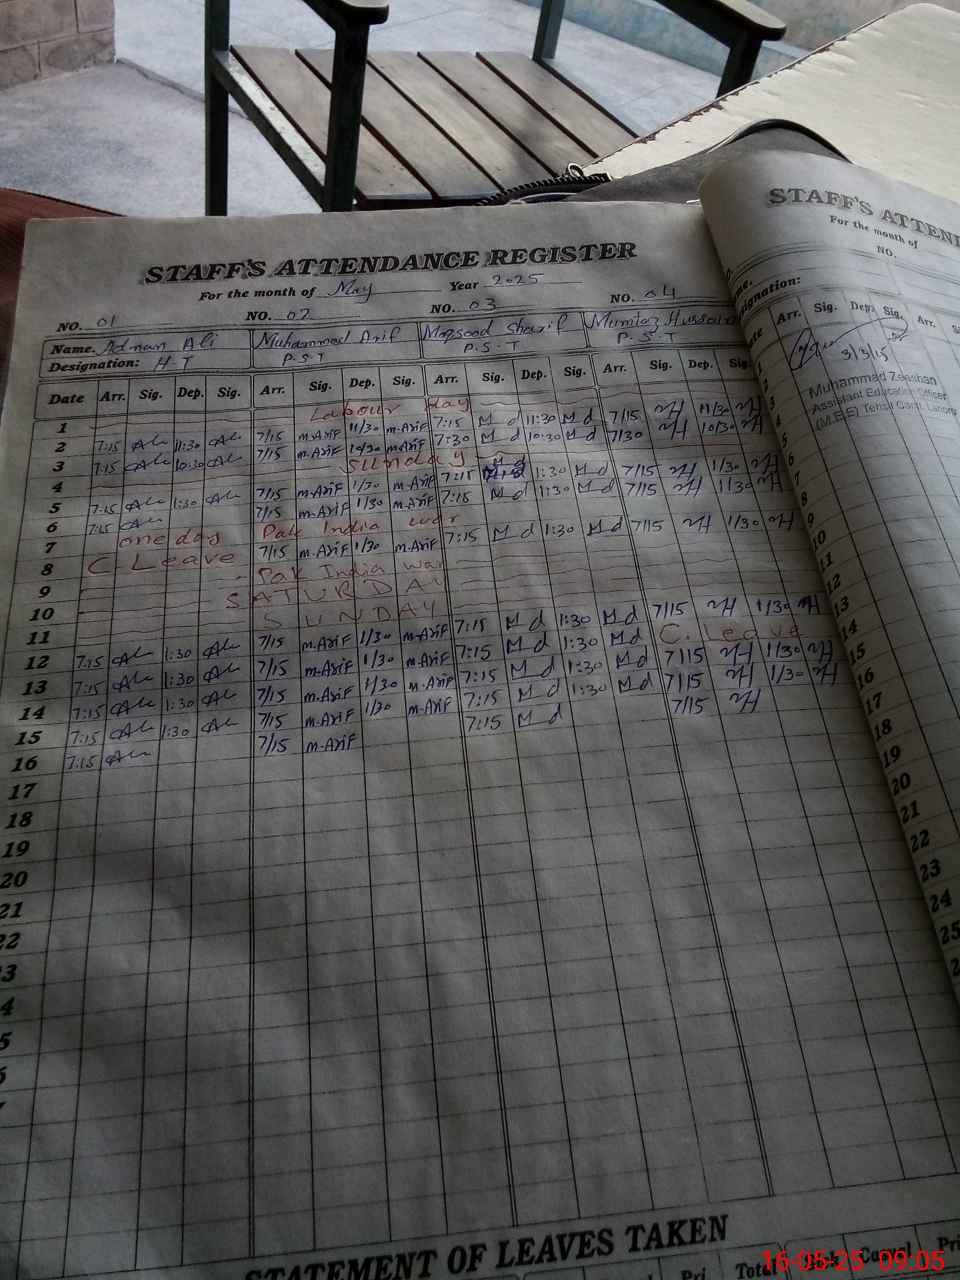 STAFF'S ATTENDANCE REGISTER
For the month of May Year 2025
NO. 01 NO. 02 NO. 03 NO. 04
Name. Adnan Ali Muhammad Arif Maqsood Sharif Mumtaz Hussain
Designation: H-T P.S.T P.S.T P.S.T
Date Arr. Sig. Dep. Sig. Arr. Sig. Dep. Sig. Arr. Sig. Dep. Sig. Arr. Sig. Dep. Sig.
1 Labour day
2 7:15 11:30 7/15 m.Arif 11/30 m.Arif 7:15 M d 11:30 M d 7/15 11/30
3 7:15 10:30 7/15 m.Arif 10/30 m.Arif 7:30 M d 10:30 M d 7/30 10/30
4 Sunday
5 7:15 1:30 7/15 m.Arif 1/30 m.Arif 7:15 1:30 M d 7/15 1/30
6 7:15 7/15 m.Arif 1/30 m.Arif 7:15 M d 1:30 M d 7/15 1/30
7 one day Pak India war
8 C. Leave 7/15 m.Arif 1/30 m.Arif 7:15 M d 1:30 M d 7/15 1/30
9 Pak India war
10 SATURDAY
11 SUNDAY
12 7:15 1:30 7/15 m.Arif 1/30 m.Arif 7:15 M d 1:30 M d 7/15 1/30
13 7:15 1:30 7/15 m.Arif 1/30 m.Arif 7:15 M d 1:30 M d C. Leave
14 7:15 1:30 7/15 m.Arif 1/30 m.Arif 7:15 M d 1:30 M d 7/15 1/30
15 7:15 1:30 7/15 m.Arif 1/30 m.Arif 7:15 M d 1:30 M d 7/15 1/30
16 7:15 7/15 m.Arif 7:15 M d 7/15
17
18
19
20
21
22
STATEMENT OF LEAVES TAKEN
Pri Total Casual Pri
STAFF'S ATTEN
For the month of
NO.
Arr. Sig. Dep. Sig. Arr. Sig.
3/3/15
Muhammad Zeeshan
Assistant Education Officer
(M.E.E) Tehsil Cantt. Lahore
1
2
3
4
5
6
7
8
9
10
11
12
13
14
15
16
17
18
19
20
21
22
23
24
25
16-05-25 09:05